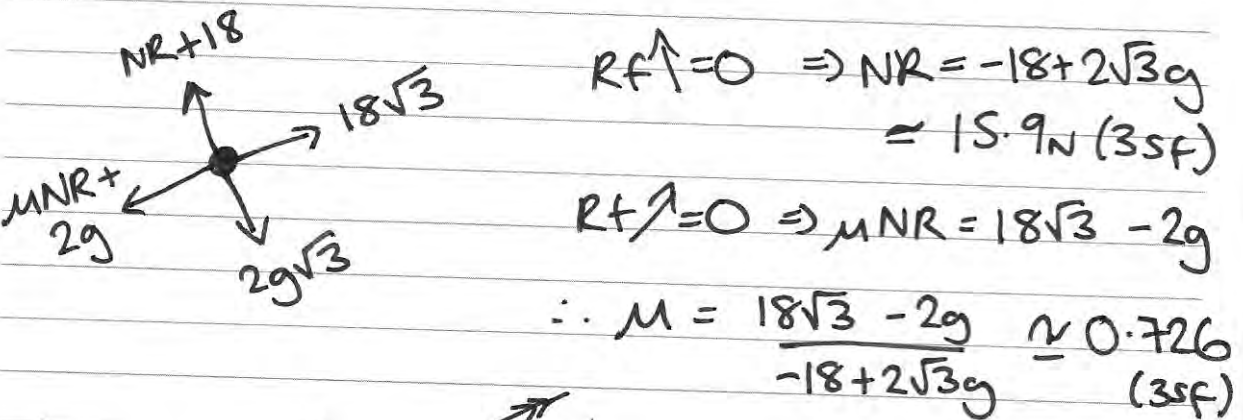 NR+18
18√3
μNR+
2g
2g√3
Rf↑=0 ⇒ NR = -18+2√3g
≃ 15.9N (3sf)
Rf↗=0 ⇒ μNR = 18√3 - 2g
∴ μ = (18√3 - 2g)/(-18+2√3g) ≃ 0.726
(3sf)